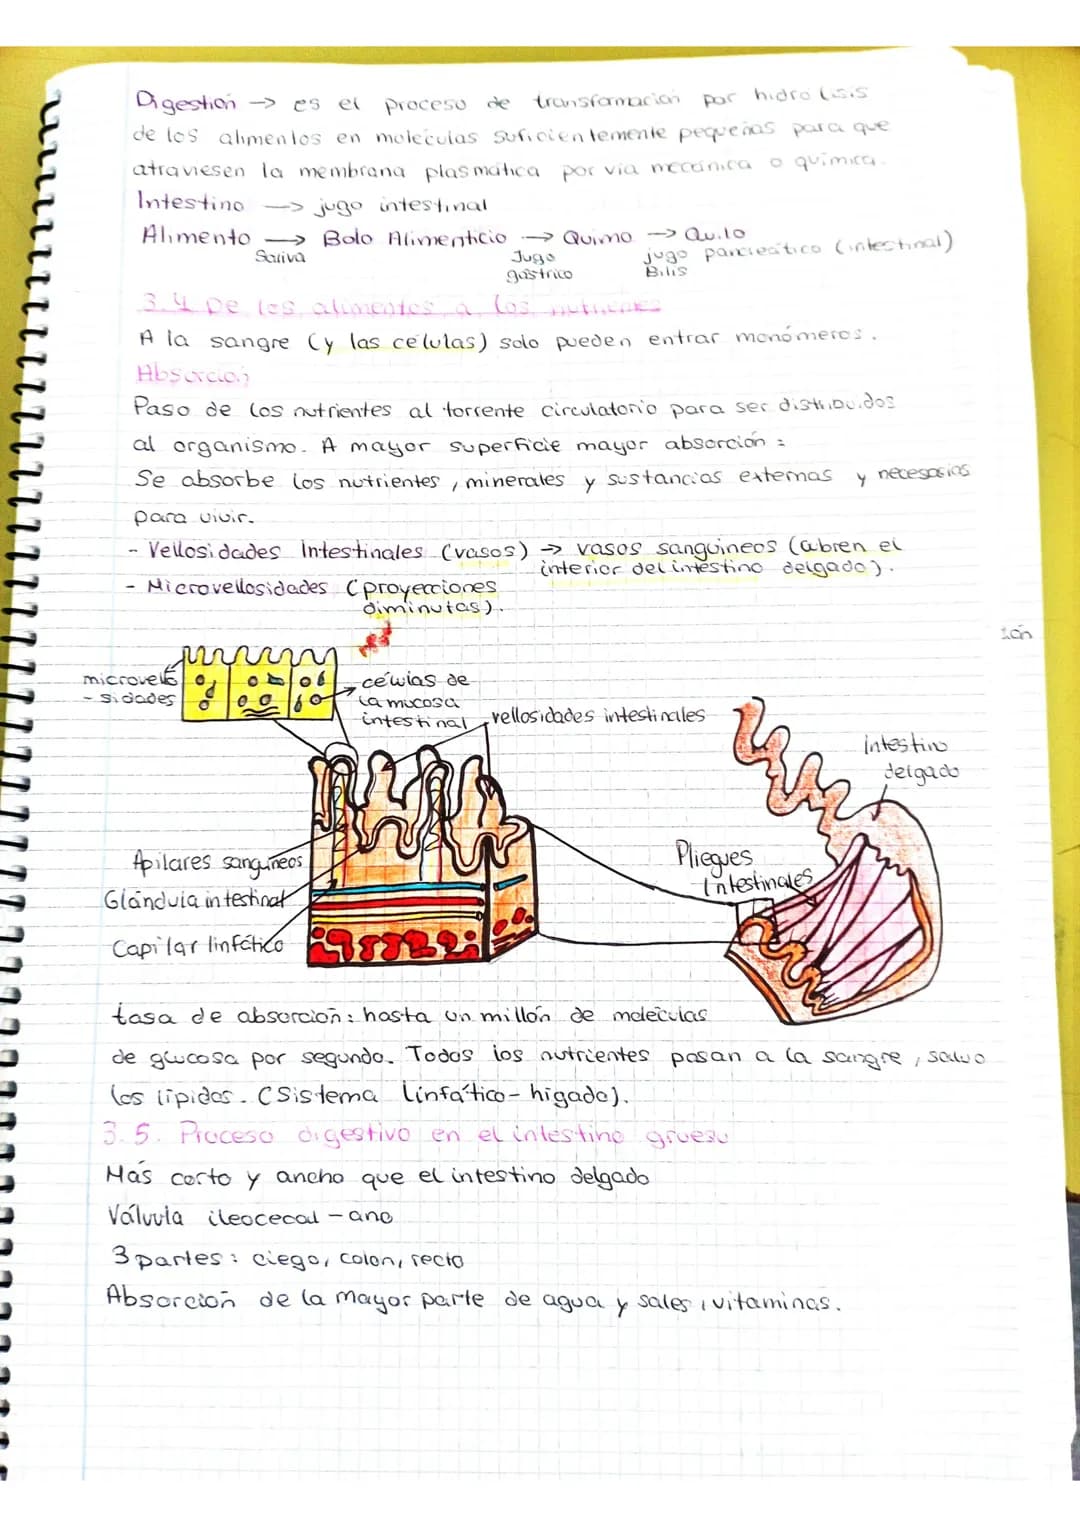 Digestión → es el proceso de transformación por hidrolisis
de los alimentos en moléculas suficientemente pequeñas para que
atraviesen la membrana plasmática por vía mecánica o química.
Intestino → jugo intestinal
Alimento → Bolo Alimenticio → Quimo → Quilo
Saliva Jugo gástrico jugo pancreático (intestinal)
Bilis
3.4 De los alimentos a los nutrientes
A la sangre (y las células) solo pueden entrar monómeros.
Absorción
Paso de los nutrientes al torrente circulatorio para ser distribuidos
al organismo. A mayor superficie mayor absorción:
Se absorbe los nutrientes, minerales y sustancias externas y necesarias
para vivir.
- Vellosidades Intestinales (vasos) → vasos sanguineos (abren el
interior del intestino delgado).
- Microvellosidades (proyecciones
diminutas).
ión
microvello
- sidades
células de
la mucosa
intestinal
vellosidades intestinales
intestino
delgado
Apilares sanguineos
Glándula intestinal
Capilar linfático
Pliegues
Intestinales
tasa de absorción: hasta un millón de moléculas
de glucosa por segundo. Todos los nutrientes pasan a la sangre, salvo
los lípidos. (Sistema Linfático - hígado).
3.5. Proceso digestivo en el intestino grueso
Más corto y ancho que el intestino delgado
Válvula ileocecal - ano
3 partes: ciego, colon, recto
Absorción de la mayor parte de agua y sales, vitaminas.